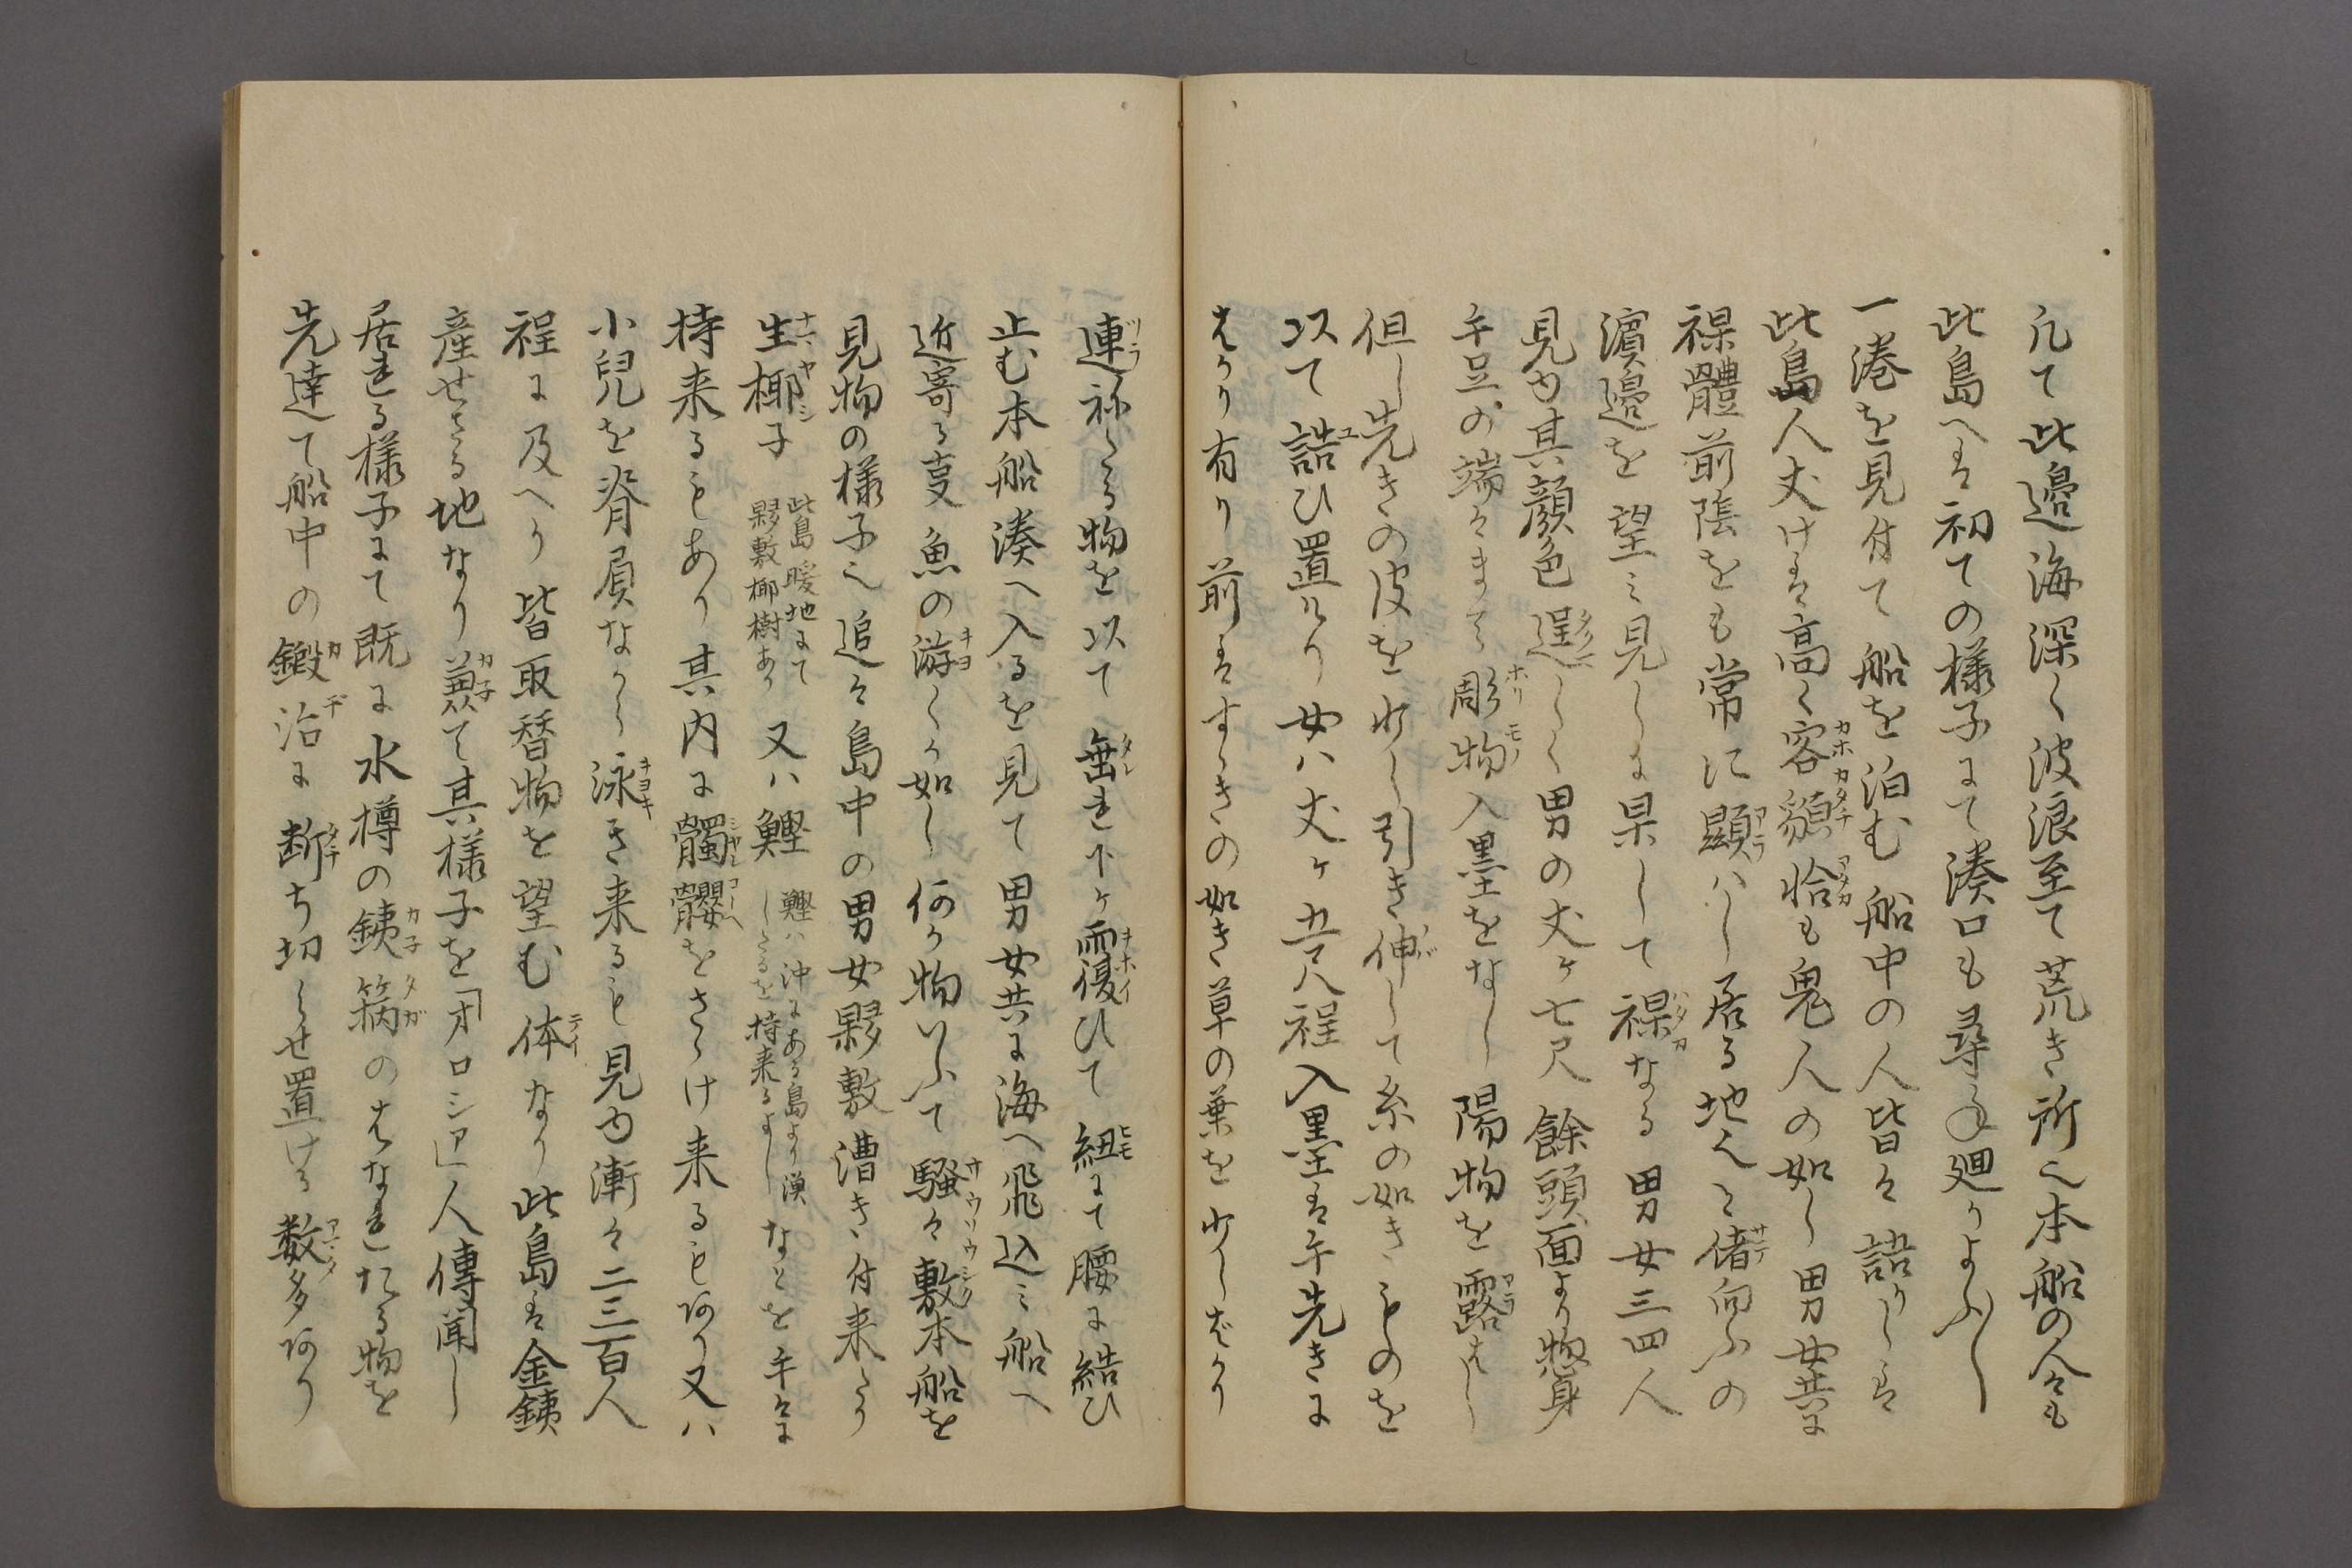 凡て此邉海深く波浪至て荒き所也本船の人々も
此島へは初ての様子にて湊口も尋ね廻りよふ〳〵
一港を見付て船を泊む船中の人皆々語りしは
此島人丈けは高く容貌恰も鬼人の如し男女共に
裸體前陰をも常に顕ハし居る地也と偖向ふの
濱邉を望ミ見しに果して裸なる男女三四人
見ゆ其顔色逞しく男の丈ヶ七尺餘頭面より惣身
手足の端々まて彫物入墨をなし陽物を露はし
但し先きの皮を少し引き伸して糸の如きものを
以て詰ひ置けり女ハ丈ヶ五六尺程入墨は手先きに
はかり有り前はすゝきの如き草の葉を少しばかり
連ねたる物を以て垂れ下ヶ覆ひて紐にて腰に結ひ
止む本船湊へ入るを見て男女共に海へ飛込ミ船へ
近寄る事魚の游くか如し何か物いふて騒々敷本船を
見物の様子也追々島中の男女夥敷漕き付来たり
生椰子 此島暖地にて
夥敷椰樹あり 又ハ鰹 鰹ハ沖にある島より漁
したるを持来るよし なとを手々に
持来るもあり其内に髑髏をさゝけ来るも有り又ハ
小兒を脊負なから泳き来るも見ゆ漸々二三百人
程に及へり皆取替物を望む体なり此島は金銕
産せさる地なり兼て其様子を「ヲロシア」人傳聞し
居れる様子にて既に水樽の銕箍のはなれたる物を
先達て船中の鍛冶に断ち切らせ置ける数多あり